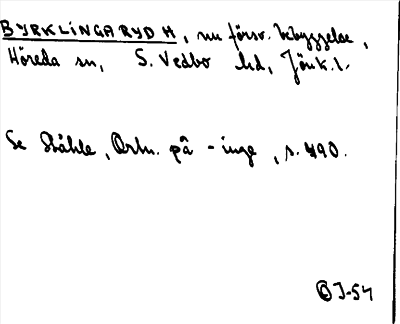 BYRKLINGARYD H, nu försv. bebyggelse,
Höreda sn, S. Vedbo hd, Jönk. l.
Se Ståhle, Ortn. på -inge, s. 490.
J-54